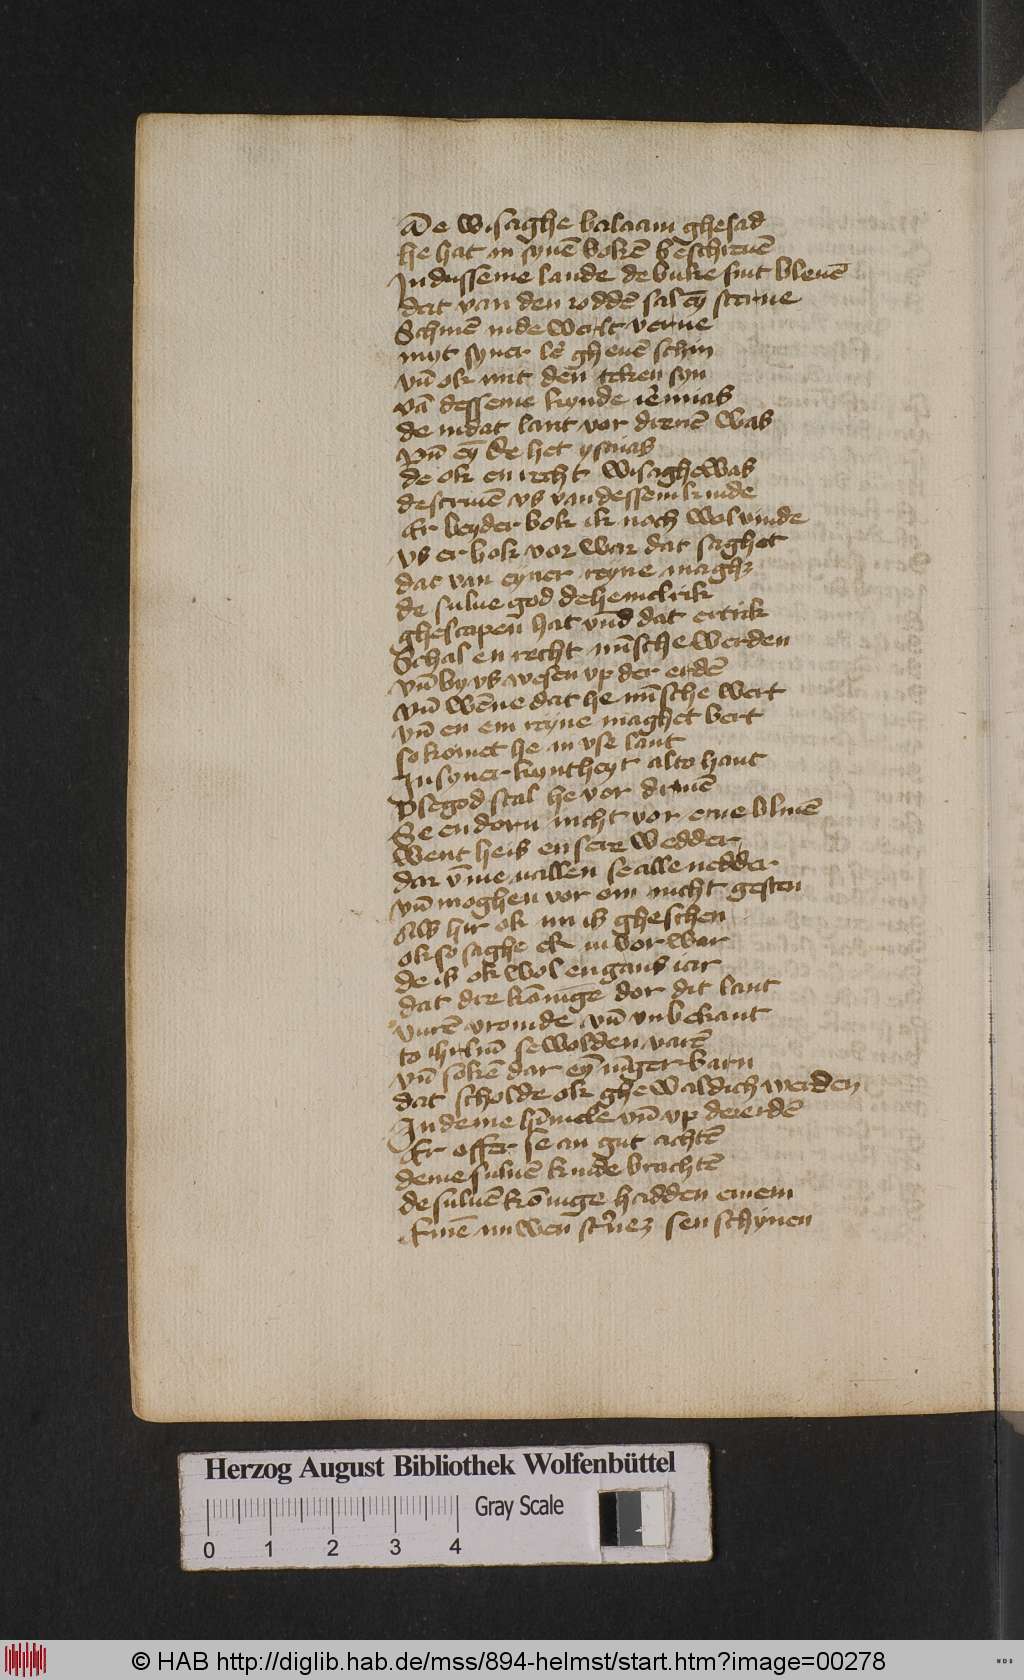 De wisaghe balaam ghesad
he hat in synē bokē beschreuē
In dusseme lande de buke sint bleuē
dat van den roddē sal eȳ sterne
Schinē in de werlt verne
myt syner lē gheuē schin
vn̄ ok mit den teken syn
vā desseme kynde ieremias
de in dat lant vor dreuē was
vn̄ eȳ de het ysaias
de ok en recht wisaghe was
descriuē vs van dessem kinde
Er beyder bok ik noch wol vinde
vs er bok vor war dat saghet
dat van eyner reyne maghet
de sulue god de hemelrik
ghescapen hat vnd dat ertrik
Schal en recht mn̄sche werden
vn̄ by vs wesen vp der erdē
vn̄ wēne dat he mn̄sche wert
vn̄ en em reyne maghet bert
so komet he in vse lant
In syner kyntheyt alto hant
Vse god scal he vor driuē
Se en dorn nicht vor eme bliuē
Went he is en sere wedder
dar v̄me uallen se alle nedder
vn̄ moghen vor om nicht gesten
Als hir ok nu is gheschen
ok so saghe ek iu vor war
de is ok wol en gans iar
dat dre kōnige dor dit lant
vurē vromde vn̄ vnbekant
to ihrlm̄ se wolden varē
vn̄ sokē dar eȳ iūger barn
dat scholde ok ghewaldich werden
In deme hīmele vn̄ vp der erdē
Er offer se an gut achtē
deme suluē kinde brachtē
de suluē kōnige hadden einem
Einē nuwen sternez sen schynen
Herzog August Bibliothek Wolfenbüttel
Gray Scale
0 1 2 3 4
© HAB http://diglib.hab.de/mss/894-helmst/start.htm?image=00278